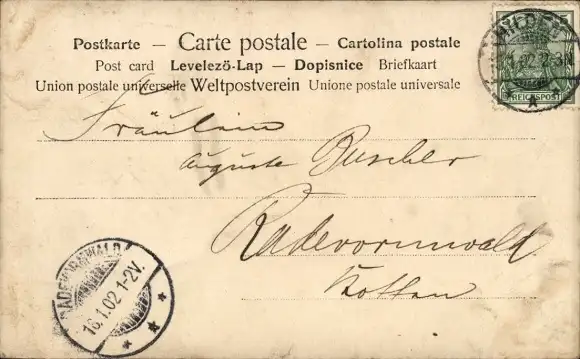 Postkarte — Carte postale — Cartolina postale
Post card — Levelező-Lap — Dopisnice — Briefkaart
Union postale universelle Weltpostverein Unione postale universale
Fräulein
Auguste Buscher
Radevormwald
REICHSPOST
1.02 2-3N
RADEVORMWALD
16.1.02 1-2V.